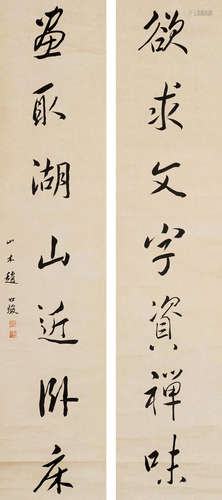 欲求文字資禪味
畫取湖山近卧床